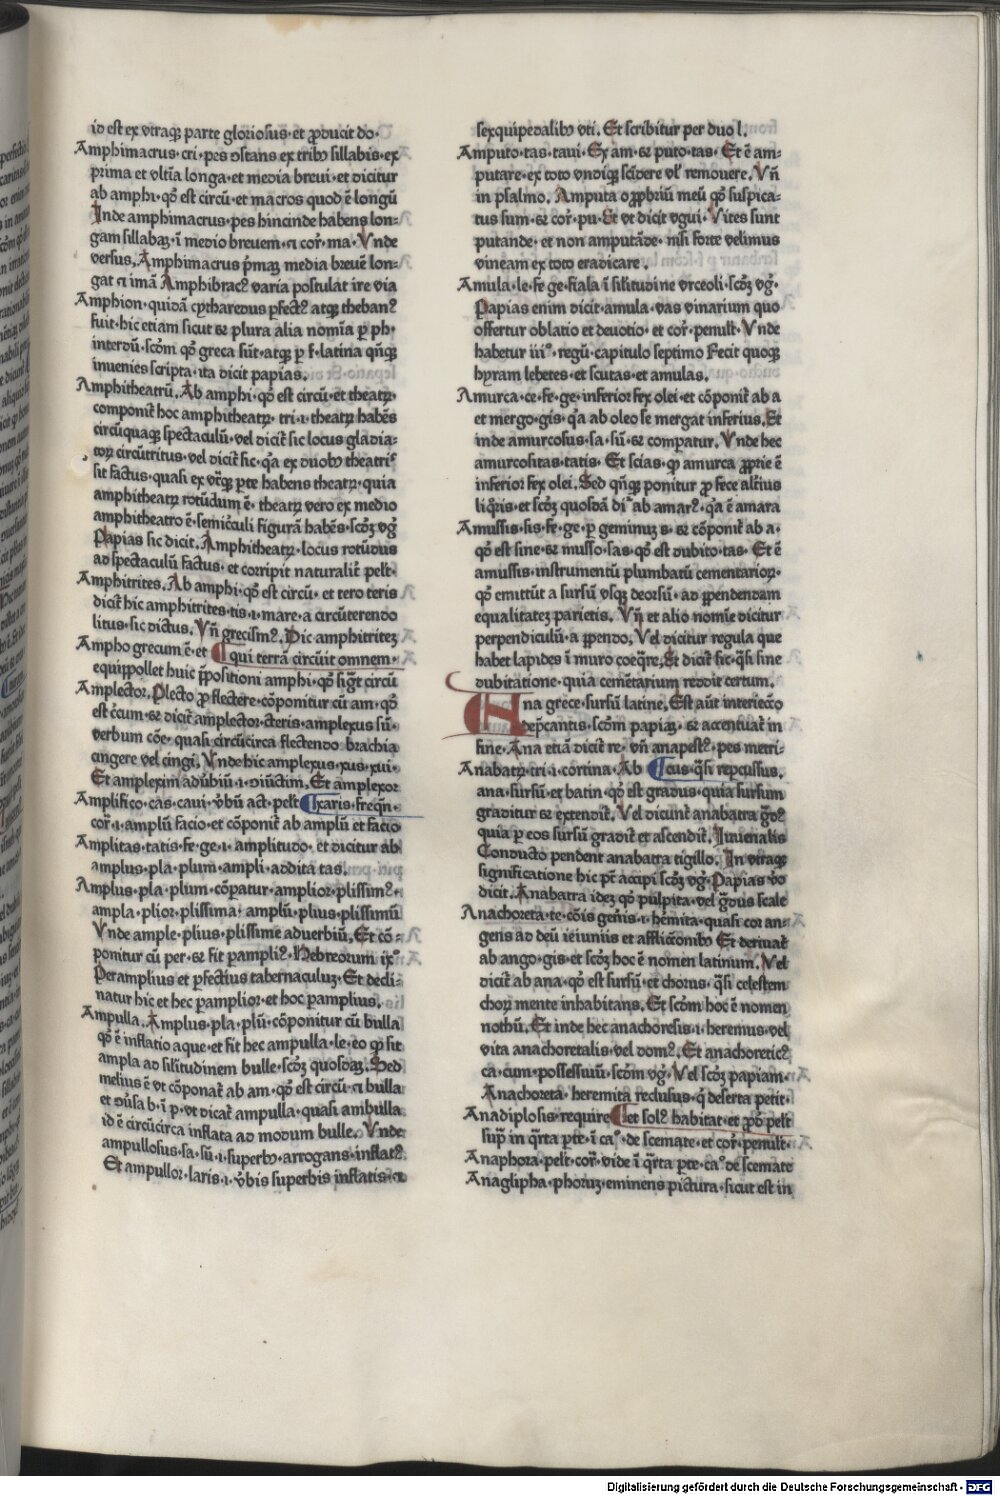 id est ex vtraqꝫ parte gloriosus·et ꝓducit do·
Amphimacrus·cri·pes ↄstans ex tribꝫ sillabis·ex
prima et vltīa longa·et media breui·et dicitur
ab amphi·qð est circū·et macros quod ē longū
Inde amphimacrus·pes hincinde habens lon-
gam sillabaꝫ·ī medio breuem·⁊ cor̄·ma·Vnde
versus. Amphimacrus p̄maꝫ media breuē lon-
gat ⁊ imā Amphibrac᷒ varia postulat ire via
Amphion·quidā cytharedus pfect᷒ atqꝫ theban᷒
fuit·hic etiam sicut ⁊ plura alia nomīa p ph·
interdū·scd̄m qð greca sūt·atqꝫ p f·latina qn̄qꝫ
inuenies scripta·ita dicit papias.
Amphitheatrū. Ab amphi·qð est circū·et theatꝝ·
componit᷑ hoc amphitheatꝝ·tri·i·theatꝝ habēs
circūquaqꝫ spectaculū·vel dicit᷑ sic locus gladia-
toꝝ circūtritus·vel dicit᷑ sic·qa ex duobꝫ theatris
sit factus·quasi ex vtͣqꝫ pte habens theatꝝ·quia
amphitheatꝝ rotūdum ē·theatꝝ vero ex medio
amphitheatro ē·semicͥculi figurā habēs·scd̄ꝫ vg᷒
Papias sic dicit. Amphitheatꝝ·locus rotūdus
ad spectaculū factus·et corripit naturalit᷑ pelt·
Amphitrites. Ab amphi·qð est circū·et tero teris
dicit᷑ hic amphitrites·tis·i·mare·a circūterendo
litus·sic dictus. Vn̄ grecism᷒. Dic amphitritez
Ampho grecum ē·et ⸿qui terrā circūit omnem·
equipollet huic ꝓpositioni amphi·qð sigͭt circū
Amplector. Plecto ꝓ flectere·cōponitur cū am·qð
est cͥcum·⁊ dicit᷑ amplector·cteris·amplexus sū·
verbum cōe·quasi circūcirca flectendo brachia
cingere vel cingi. Vnde hic amplexus·xus·xui·
Et amplexim adūbiū·i·diūctim. Et amplexor
Amplifico·cas·caui·vbū act·pelt ⸿xaris·freqn̄·
cor̄·i·amplū facio·et cōponit᷑ ab amplū et facio
Amplitas·tatis·fe·ge·i·amplitudo·et dicitur ab
amplus·pla·plum·ampli·addita tas.
Amplus·pla·plum·cōpatur·amplior·plissim᷒·
ampla·plior·plissima·amplū·plius·plissimū
Vnde ample·plius·plissime aduerbiū. Et cō-
ponitur cū per·⁊ fit pampli᷒·Hebreorum ixº
Peramplius et pfectius tabernaculuꝫ·Et decli-
natur hic et hec pamplior·et hoc pamplius.
Ampulla. Amplus·pla·plū·cōponitur cū bulla
qð ē inflatio aque·et fit hec ampulla·le·eo qꝫ sit
ampla ad silitudinem bulle·scd̄ꝫ quosdaꝫ. Sed
melius ē vt cōponat᷑ ab am·qð est circū·⁊ bulla
et ↄ̄usa b·ī p·vt dicat᷑ ampulla·quasi ambulla
id ē circūcirca inflata ad modum bulle. Vnde
ampullosus·sa·sū·i·superbꝫ·arrogans·inflat᷒
Et ampullor·laris·i·vbis superbis inflatis·⁊
sexquipedalibꝫ vti. Et scribitur per duo l.
Amputo·tas·taui·Ex am·⁊ puto·tas·Et ē am-
putare·ex toto vndiqꝫ scīdere vl᷑ remouere. Vn̄
in psalmo. Amputa oꝓbriū meū qð suspica-
tus sum·⁊ cor̄·pu·Et vt dicit vgui·Vites sunt
putande·et non amputāde·nisi forte velimus
vineam ex toto eradicare.
Amula·le·fe·ge·fiala ī silitudine vrceoli·scd̄ꝫ vg᷒·
Papias enim dicit·amula·vas vinarium quo
offertur oblatio et deuotio·et cor̄·penult·Vnde
habetur iiiº·regū·capitulo septimo Fecit quoqꝫ
hyram lebetes·et scutas·et amulas.
Amurca·ce·fe·ge·inferior fex olei·et cōponit᷑ ab a
et mergo·gis·qa ab oleo se mergat inferius. Et
inde amurcosus·sa·sū·⁊ compatur. Vnde hec
amurcositas·tatis·Et scias·qꝫ amurca ꝓprie ē
inferior fex olei. Sed qn̄qꝫ ponitur ꝓ fece alt᷑ius
liqͦris·et scd̄ꝫ quosdā dī ab amar᷒·qa ē amara
Amussis·sis·fe·ge·p geminuꝫ s·⁊ cōponit᷑ ab a·
qð est sine·⁊ musso·sas·qð est dubito·tas·Et ē
amussis·instrumentū plumbatū cementarioꝝ·
qð emittūt a sursū vsqꝫ deorsū·ad ꝓpendendam
equalitatez parietis. Vn̄ et alio nomīe dicitur
perpendiculū·a ꝓpendo. Vel dicitur regula que
habet lapides ī muro coeqͣre. Et dicit᷑ sic·qͣsi sine
dubitatione·quia cemētarium reddit certum.
Ana grece·sursū latine. Est aūt interiectio
dep̄cantis·scd̄m papiaꝫ·⁊ accentuat᷑ in
fine·Ana etiā dicit᷑ re·vn̄ anapest᷒·pes metri-
Anabatꝝ·tri·i·cortina·Ab ⸿cus·qͣsi repcussus.
ana·sursū·et batin·qð est gradus·quia sursum
graditur ⁊ extendit᷑. Vel dicunt᷑ anabatra gͣd᷒
quia p eos sursū gradit᷑ et ascendit᷑. Iuuenalis
Conducto pendent anabatra tigillo. In vtraqꝫ
significatione hic pt̄ accipi scd̄ꝫ vg᷒·Papias v̄o
dicit. Anabatra idez qð pulpita·vel gͣdus scale
Anachoreta·te·cōis gen̄is·i·hēmita·quasi cor an-
gens ad deū ieiuniis et afflictiōibꝫ Et deriuat᷑
ab ango·gis·et scd̄ꝫ hoc ē nomen latinum. Vel
dicit᷑ ab ana·qð est sursū·et chorus·qͣsi celestem
choꝝ mente inhabitans. Et scd̄m hoc ē nomen
nothū. Et inde hec anachoresis·i·heremus·vel
vita anachoretalis·vel dom᷒. Et anachoretic᷒
ca·cum·possessiuū·scd̄m vg᷒·Vel scd̄ꝫ papiam·
Anachoreta·heremita reclusus·q̄ deserta petit·
Anadiplosis·require ⸿et sol᷒ habitat·et ꝓd᷑ pelt
supͣ in qͣrta pte·ī caº·de scemate·et cor̄·penult·
Anaphora·pelt·cor̄·vide ī qͣrta pte·caº de scemate
Anaglipha·phoruꝫ·eminens pictura·sicut est in
Digitalisierung gefördert durch die Deutsche Forschungsgemeinschaft - DFG